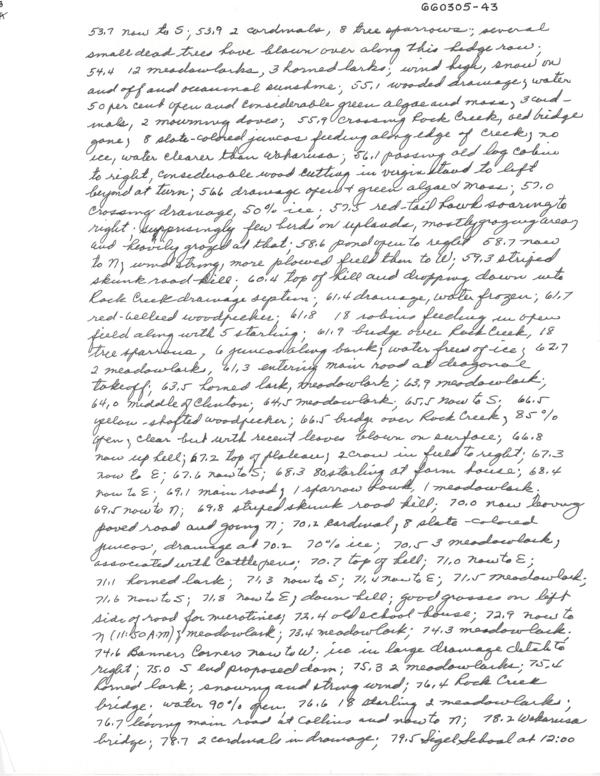 GG0305-43
53.7 now to S; 53.9 2 cardinals, 8 tree sparrows; several
small dead trees have blown over along this hedge row;
54.4 12 meadowlarks, 3 horned larks; wind high, snow on
and off and occasional sunshine; 55.1 wooded drainage; water
50 per cent open and considerable green algae and moss; 3 card-
inals, 2 mourning doves; 55.9 crossing Rock Creek, old bridge
gone; 8 slate-colored juncos feeding along edge of creek; no
ice, water clearer than Wakarusa; 56.1 passing old log cabin
to right, considerable wood cutting in virgin stand to left
beyond at turn; 56.6 drainage open + green algae & moss; 57.0
crossing drainage, 50% ice; 57.5 red-tail hawk soaring to
right; surprisingly few birds on uplands, mostly grazing areas
and heavily grazed at that; 58.6 pond open to right 58.7 now
to N; wind strong, more plowed field than to W; 59.3 striped
skunk road-kill; 60.4 top of hill and dropping down into
Rock Creek drainage system; 61.4 drainage, water frozen; 61.7
red-bellied woodpecker; 61.8 18 robins feeding in open
field along with 5 starling; 61.9 bridge over Rock Creek, 18
tree sparrows, 6 juncos along bank; water free of ice; 62.7
2 meadowlark, 61.3 entering main road at diagonal
takeoff; 63.5 horned lark, meadowlark; 63.9 meadowlark;
64.0 middle of Clinton; 64.5 meadowlark; 65.5 now to S; 66.5
yellow-shafted woodpecker; 66.5 bridge over Rock Creek, 85%
open, clear but with recent leaves blown on surface; 66.8
now up hill; 67.2 top of plateau; 2 crow in field to right; 67.3
now to E; 67.6 now to S; 68.3 80 starling at farm house; 68.4
now to E; 69.1 main road; 1 sparrow hawk, 1 meadowlark.
69.5 now to N; 69.8 striped skunk road kill; 70.0 now leaving
paved road and going N; 70.2 cardinal, 8 slate-colored
juncos, drainage at 70.2 70% ice; 70.5 3 meadowlark,
associated with cattle pens; 70.7 top of hill; 71.0 now to E;
71.1 horned lark; 71.3 now to S; 71.4 now to E; 71.5 meadowlark;
71.6 now to S; 71.8 now to E, down hill; good grasses on left
side of road for microtines; 72.4 old school house; 72.9 now to
N (11:50 A.M); meadowlark; 73.4 meadowlark; 74.3 meadowlark;
74.6 Banners Corners now to W; ice in large drainage ditch to
right; 75.0 S end proposed dam; 75.3 2 meadowlarks; 75.4
horned lark; snowing and strong wind; 76.4 Rock Creek
bridge. water 90% open, 76.6 18 starling 2 meadowlarks;
76.7 leaving main road at Collins and now to N; 78.2 Wakarusa
bridge; 78.7 2 cardinals in drainage; 79.5 Sigel School at 12:00